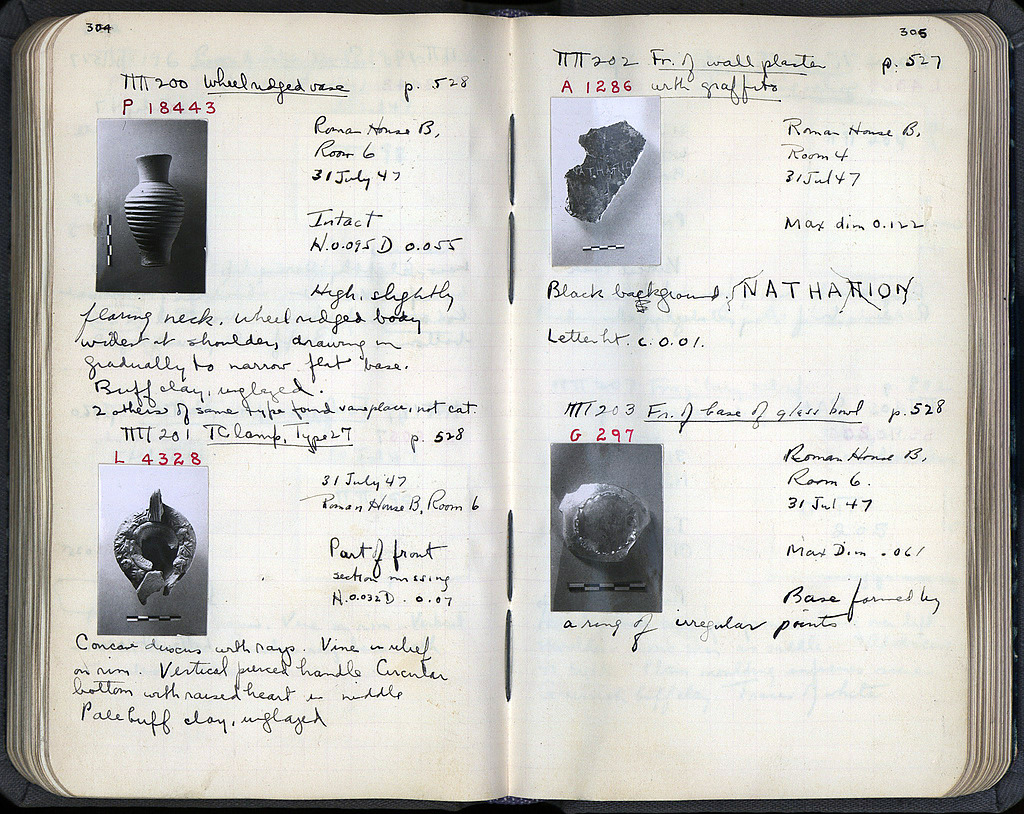 304
ΠΠ 200 Wheel ridged vase p. 528
P 18443
Roman House B,
Room 6
31 July 47
Intact
H. 0.095 D 0.055
High, slightly
flaring neck, wheel ridged body
widest at shoulder, drawing in
gradually to narrow flat base.
Buff clay, unglazed.
2 others of same type found same place, not cat.
ΠΠ 201 TC lamp, Type 27 p. 528
L 4328
31 July 47
Roman House B, Room 6
Part of front
section missing
H. 0.032 D. 0.07
Concave discus with rays. Vine in relief
on rim. Vertical pierced handle Circular
bottom with raised heart in middle
Pale buff clay, unglazed
305
ΠΠ 202 Fr. of wall plaster p. 527
A 1286 with graffito
Roman House B,
Room 4
31 Jul 47
Max dim 0.122
Black background. NATHANION
Letter ht. c. 0.01.
ΠΠ 203 Fr. of base of glass bowl p. 528
G 297
Roman House B,
Room 6.
31 Jul 47
Max Dim .061
Base formed by
a ring of irregular points